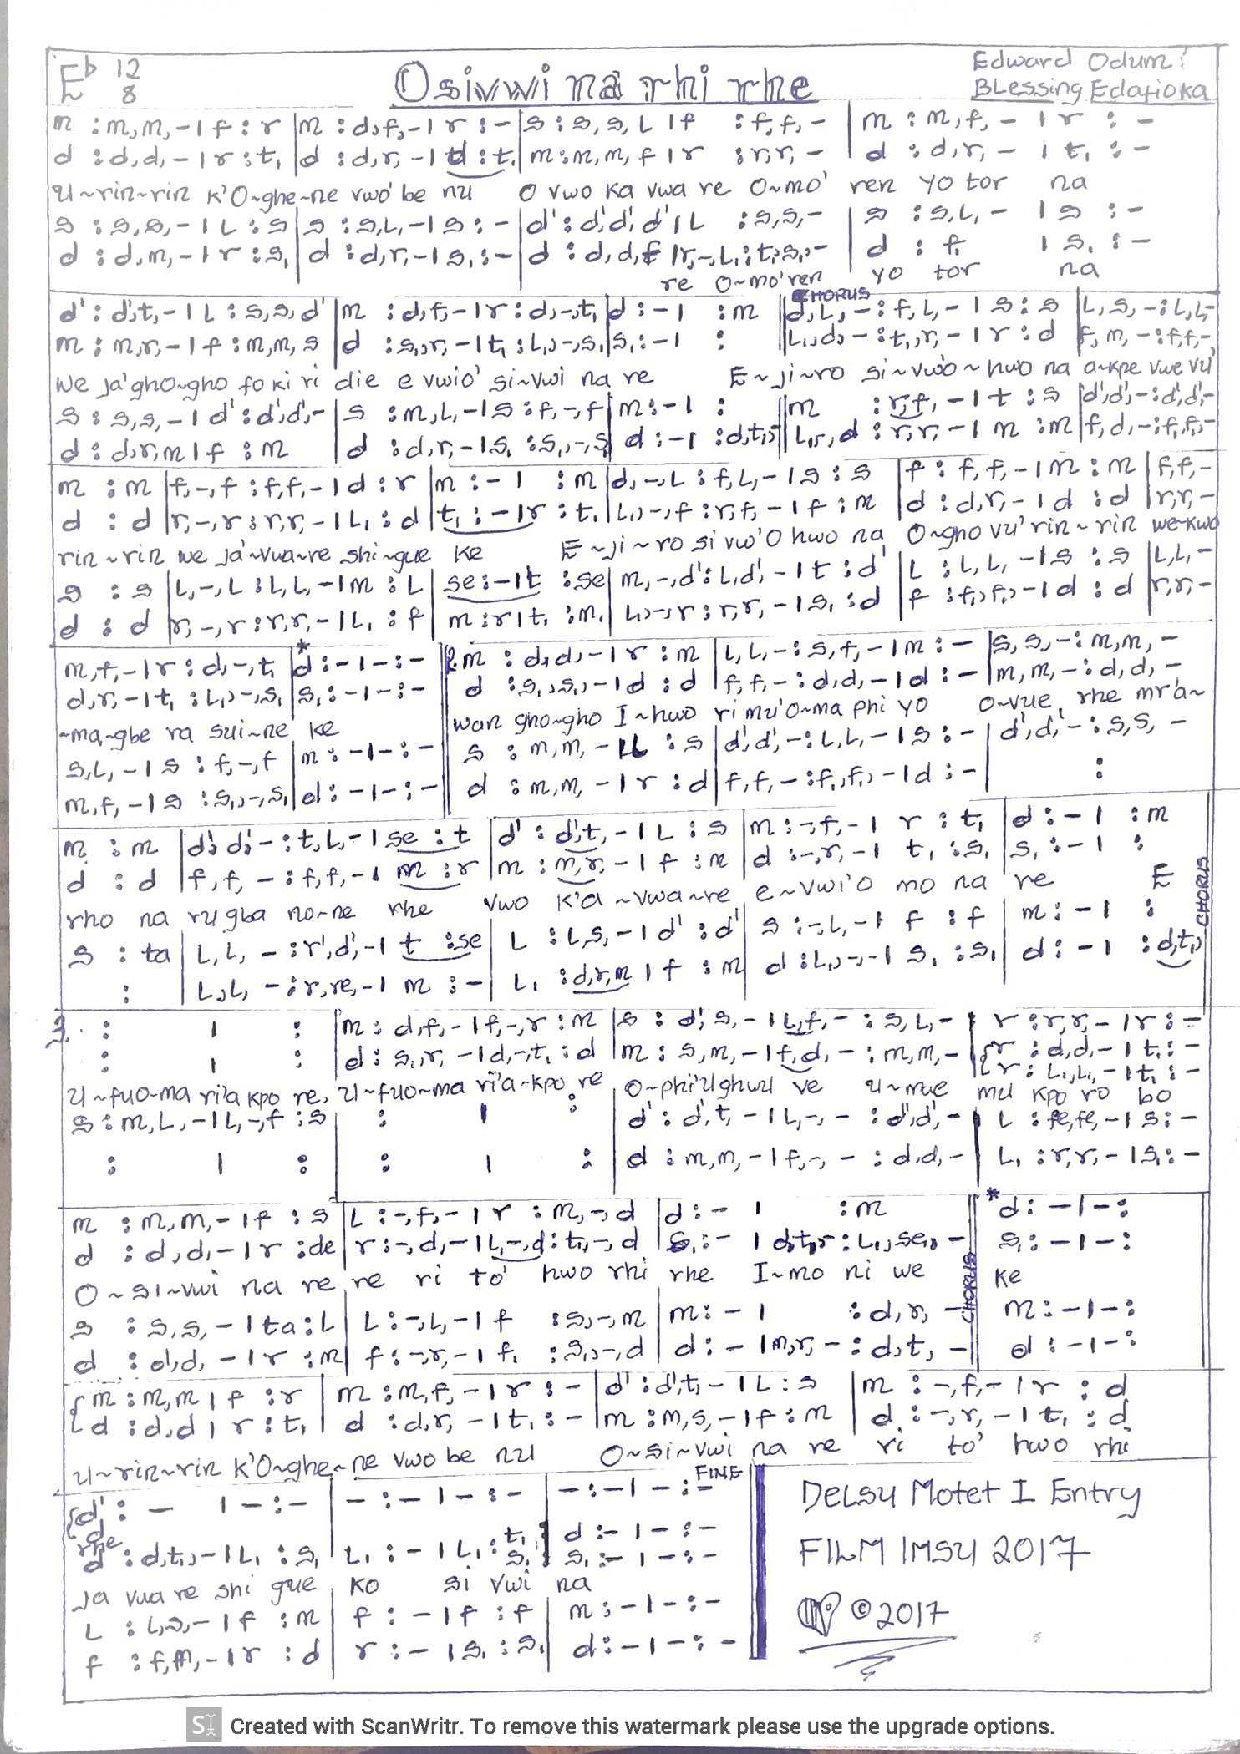 E♭ 12
8
Osivwi na rhi rhe
Edward Odum:
Blessing Edafioka
m :m,m,-| f : r |m : d,f,-| r : -| s : s,s,L |f : f,f,- | m : m,f,- | r : -
d :d,d,-| r : t₁| d : d,r,-| d : t₁| m : m,m,f | r : r,r,- | d : d,r,- | t₁ : -
U~rin~rin k'O~ghe~ne vwo' be nu O vwo ka vwa re O~mo' ren yo tor na
s : s,s,-| L : s | s : s,L,-| s : -| d' : d',d',d' | L : s,s,- | s : s,L,- | s : -
d : d,m,-| r : s₁| d : d,r,-| s₁ : -| d : d,d,f | r,-,L₁ : t₁,s₁,- | d : f₁ | s₁ : -
re O~mo'ren yo tor na
CHORUS
d' : d',t,-| L : s,s,d' | m : d,f,-| r : d,-,t₁| d : -| : m | d,L,- : f,L,-| s : s | L,s,- : L,L,-
m : m,r,-| f : m,m,s | d : s₁,r,-| t₁ : L₁,-,s₁| s₁ : -| : | L₁,d,- : t₁,r,-| r : d | f,m,- : f,f,-
We ja'gho~gho fo ki ri die e vwio' si~vwi na re E~ji~ro si~vwo~hwo na a~kpe vwe vu'
s : s,s,-| d' : d',d',- | s : m,L,-| s : f,-,f | m : -| : | m : r,f,-| t : s | d',d',- : d',d',-
d : d,r,m | f : m | d : d,r,-| s₁ : s₁,-,s₁ | d : -| : d,t₁,s₁ | L₁,r,d : r,r,-| m : m | f,d,- : f,f,-
m : m | f,-,f : f,f,-| d : r | m : -| : m | d,-,L : f,L,-| s : s | f : f,f,-| m : m | f,f,-
d : d | r,-,r : r,r,-| L₁ : d | t₁ : -| r : t₁| L₁,-,f : r,f,-| f : m | d : d,r,-| d : d | r,r,-
rin~rin we ja'~vwa~re shi~gue ke E~ji~ro si vw'O hwo na O~gho vu' rin~rin we~kwo
s : s | L,-,L : L,L,-| m : L | se : -| t : se | m,-,d' : L,d',-| t : d' | L : L,L,-| s : s | L,L,-
d : d | r,-,r : r,r,-| L₁ : f | m : r | t₁ : m₁| L₁,-,r : r,r,-| s₁ : d | f : f,f,-| d : d | r,r,-
m,f,-| r : d,-,t₁| *d : -|- : -| 2. m : d,d,-| r : m | L,L,- : s,f,-| m : -| s,s,- : m,m,-
d,r,-| t₁ : L₁,-,s₁| s₁ : -|- : -| d : s₁,s₁,-| d : d | f,f,- : d,d,-| d : -| m,m,- : d,d,-
~ma~gbe ra sui~ne ke wan gho~gho I~hwo ri mu'o~ma phi yo o~vue rhe mra~
s,L,-| s : f,-,f | m : -|- : -| s : m,m,-| L : s | d',d',- : L,L,-| s : -| d',d',- : s,s,-
m,f,-| s : s₁,-,s₁| d : -|- : -| d : m,m,-| r : d | f,f,- : f,f,-| d : -| :
m : m | d',d',- : t,L,-| se : t | d' : d',t,-| L : s | m : -,f,-| r : t₁| d : -| : m
d : d | f,f,- : f,f,-| m : r | m : m,r,-| f : m | d : -,r,-| t₁ : s₁| s₁ : -| :
rho na rugba no~ne rhe vwo k'a~vwa~re e~vwi'o mo na re E
CHORUS
s : ta | L,L,- : r',d',-| t : se | L : L,s,-| d' : d' | s : -,L,-| f : f | m : -| :
: | L₁,L₁,- : r,re,-| m : -| L₁ : d,r,m | f : m | d : L₁,-,-| s₁ : s₁| d : -| : d,t₁,
3. : | : | m : d,f,-| f,-,r : m | s : d',s,-| L,f,- : s,L,-| r : r,r,-| r : -
: | : | d : s₁,r,-| d,-,t₁ : d | m : s,m,-| f,d,- : m,m,-| r : d,d,-| t₁ : -
r : L₁,L₁,-| t₁ : -
U~fuo~ma ri'a kpo re, U~fuo~ma ri'a~kpo re O~phi'Ughwu ve u~mue mu kpo ro bo
s : m,L,-| L,-,f : s | : | : | d' : d',t,-| L,-,- : d',d',-| L : fe,fe,-| s : -
: | : | : | : | d : m,m,-| f,-,- : d,d,-| L₁ : r,r,-| s₁ : -
m : m,m,-| f : s | L : -,f,-| r : m,-,d | d : -| : m | *d : -|- :
d : d,d,-| r : de | r : -,d,-| L₁,-,d : t₁,-,d | s₁ : -| d,t₁,r : L₁,se₁,-| s₁ : -|- :
O~si~vwi na re re ri to' hwo rhi rhe I~mo ni we ke
CHORUS
s : s,s,-| ta : L | L : -,L,-| f : s,-,m | m : -| : d,r,-| m : -|- :
d : d,d,-| r : m | f : -,r,-| f₁ : s₁,-,d | d : -| m,r,- : d,t₁,-| d : -|- :
m : m,m | f : r | m : m,f,-| r : -| d' : d',t,-| L : s | m : -,f,-| r : d
d : d,d | r : t₁| d : d,r,-| t₁ : -| m : m,s,-| f : m | d : -,r,-| t₁ : d
U~rin~rin k'O~ghe~ne vwo be nu O~si~vwi na re ri to' hwo rhi
FINE
d' : -|- : -| - : -|- : -| - : -|- : -
d
rhe
d : d,t₁,-| L₁ : s₁| L₁ : -| L₁ : t₁ s₁| d : -|- : -
s₁ : -|- : -
Ja vwa re shi gue ko si vwi na
L : L,s,-| f : m | f : -| f : f | m : -|- : -
f : f,m,-| r : d | r : -| s₁ : s₁| d : -|- : -
Delsu Motet I Entry
FILM IMSU 2017
©2017
Created with ScanWritr. To remove this watermark please use the upgrade options.